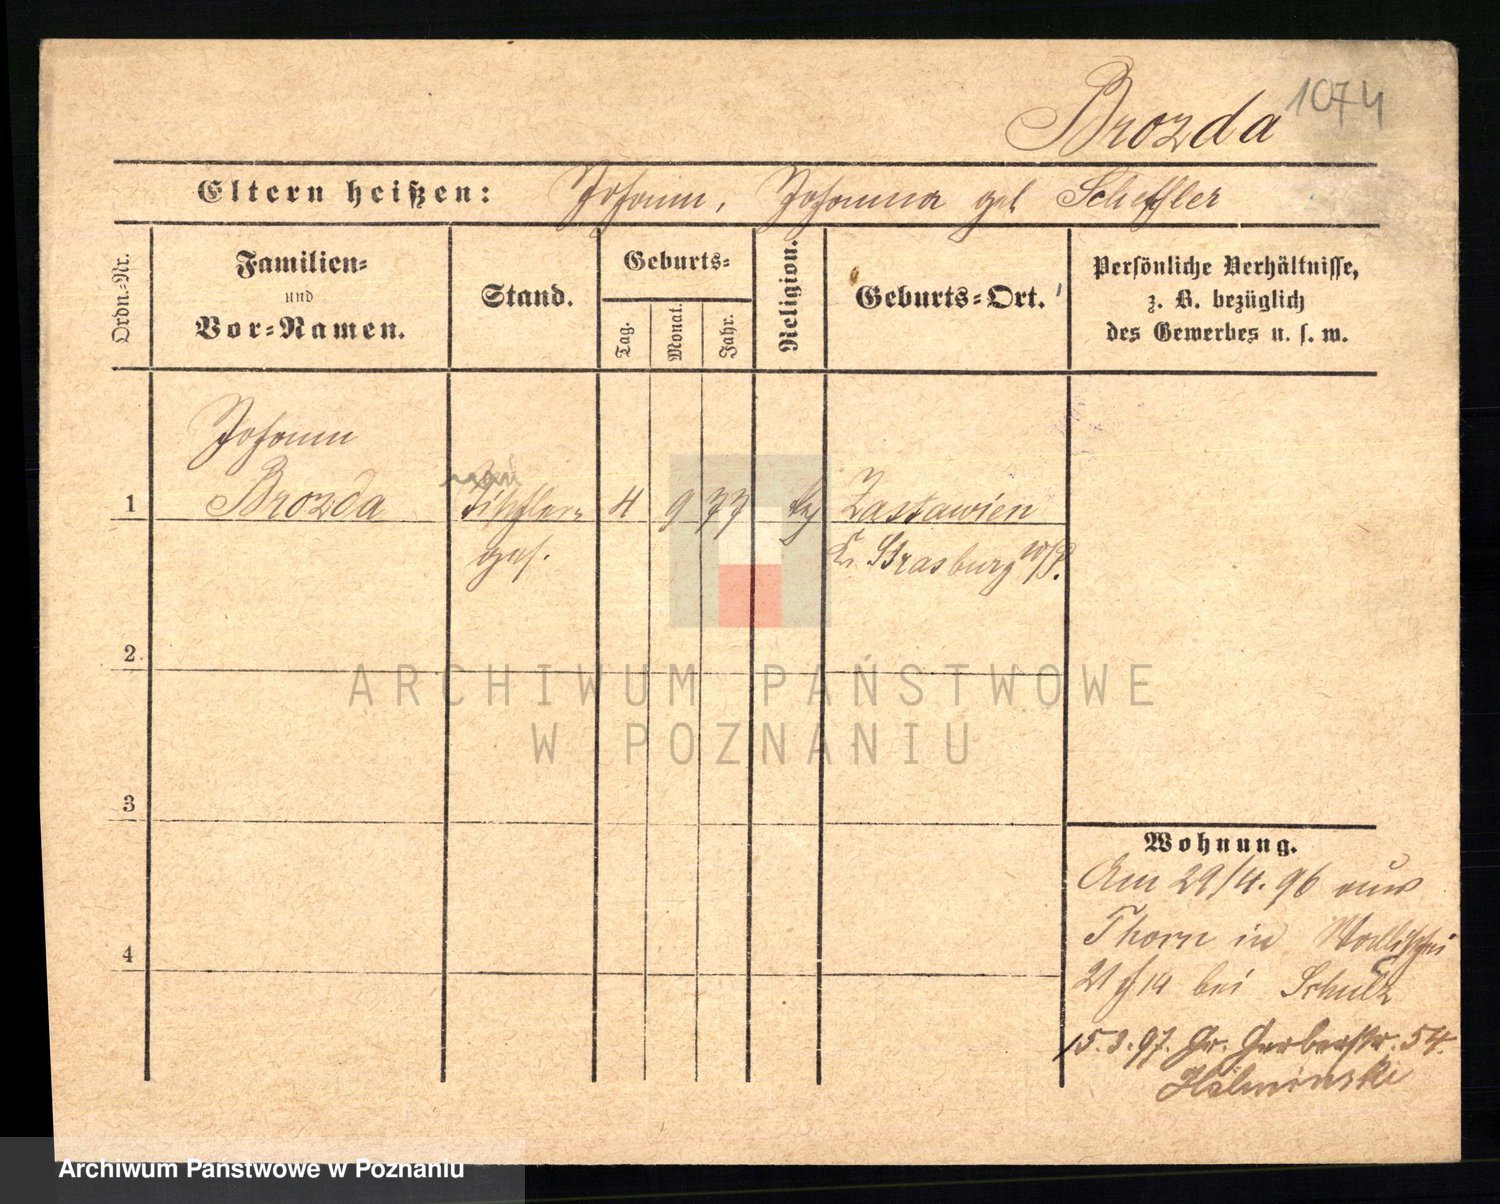 Brozda 1074
Eltern heißen: Johann, Johanna geb Scheffler
Ordn.-Nr.
Familien-
und
Vor-Namen.
Stand.
Geburts-
Tag.
Monat.
Jahr.
Religion.
Geburts-Ort.
Persönliche Verhältnisse,
z. B. bezüglich
des Gewerbes u. s. w.
Johann
1 Brozda Tischler- 4 9 77 Zastawien
ges. Kr. Strasburg W/P.
2
3
4
Wohnung.
Am 29/4. 96 aus
Thorn in Wallischei
bei Schulz
15.3.97. Gr. Gerberstr. 54.
ARCHIWUM PAŃSTWOWE
W POZNANIU
Archiwum Państwowe w Poznaniu